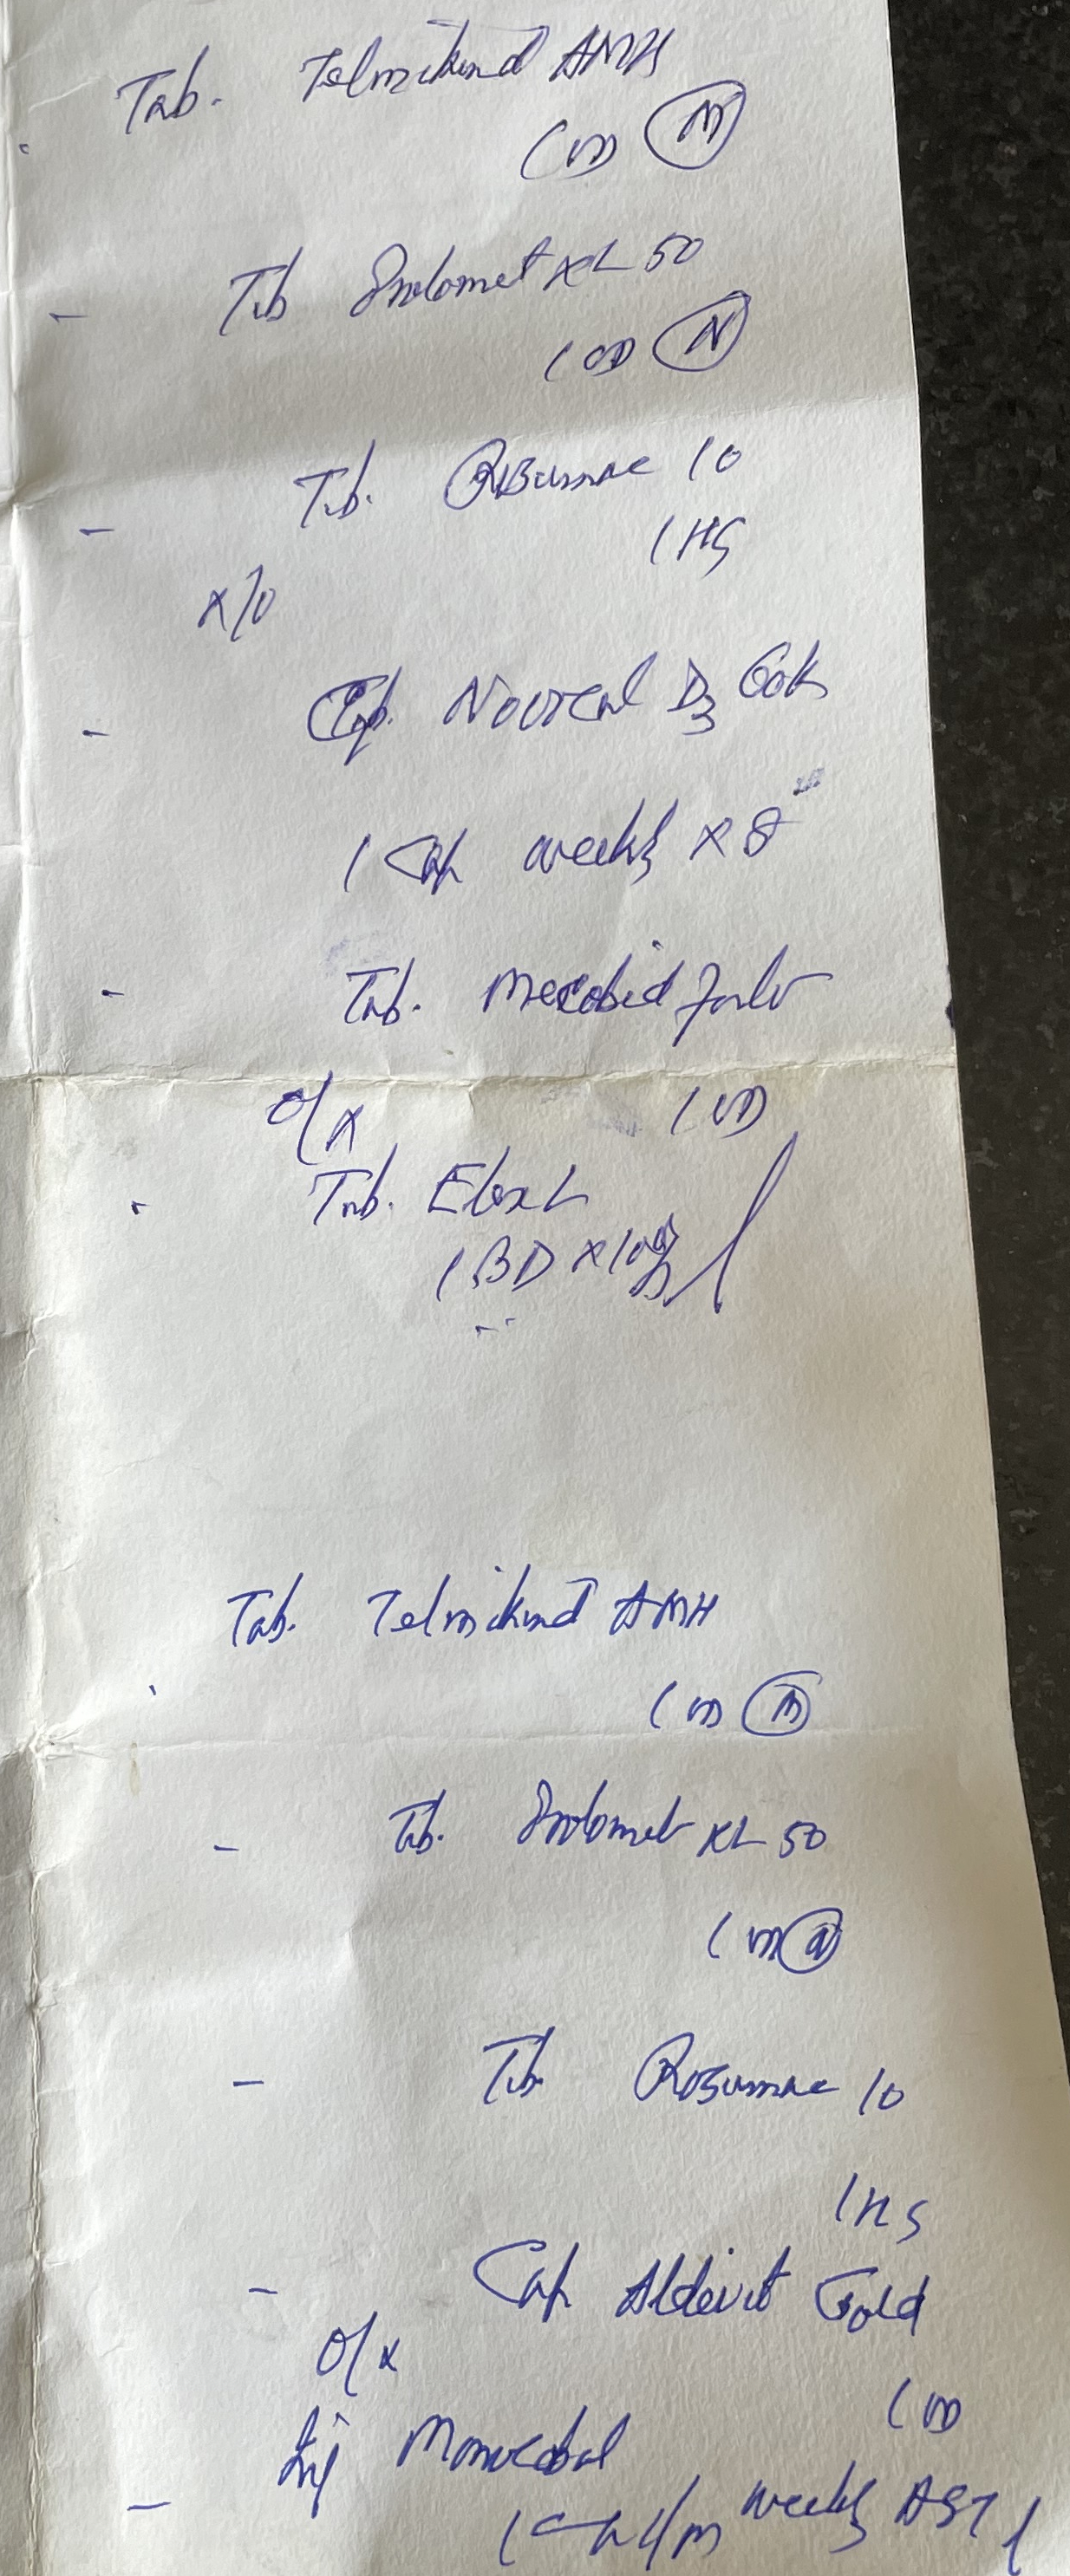 Tab. Telmikind AMH
1 OD M
Tab Prolomet XL 50
1 OD N
Tab. Rosumac 10
1 HS
x/o
Cap. D3 60k
1 Cap weekly x 8
Tab. Mecobid forte
o/x 1 OD
Tab.
1 BD x 10 days
Tab. Telmikind AMH
1 OD M
Tab. Prolomet XL 50
1 OD N
Tab. Rosumac 10
1 HS
Cap Gold
o/x
1 OD
Inj
1 I/m weekly AST